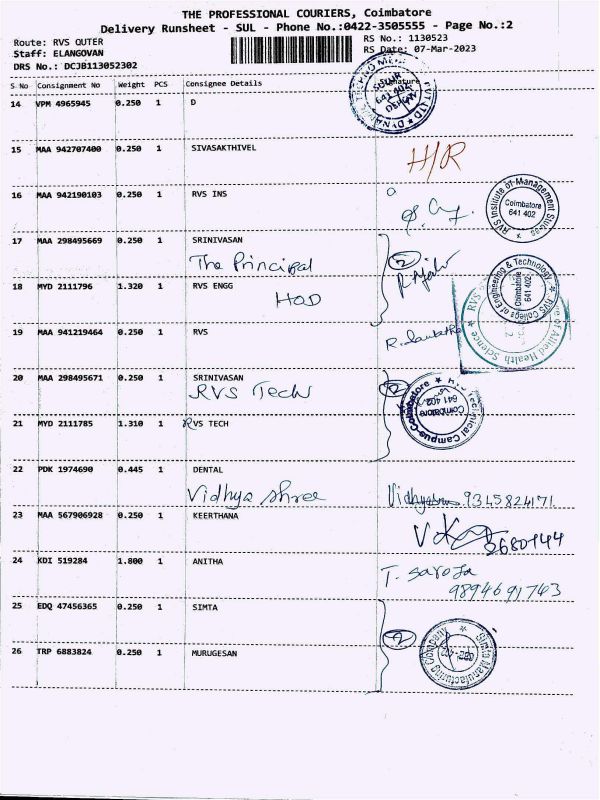 THE PROFESSIONAL COURIERS, Coimbatore
Delivery Runsheet - SUL - Phone No.:0422-3505555 - Page No.:2
Route: RVS OUTER
RS No.: 1130523
Staff: ELANGOVAN
RS Date: 07-Mar-2023
DRS No.: DCJB113052302
S No Consignment No Weight PCS Consignee Details Signature
14 VPM 4965945 0.250 1 D
15 MAA 942707400 0.250 1 SIVASAKTHIVEL H/R
16 MAA 942190103 0.250 1 RVS INS
RVS Institute of Management Studies Coimbatore 641 402
17 MAA 298495669 0.250 1 SRINIVASAN
The Principal 2
18 MYD 2111796 1.320 1 RVS ENGG
HOD
RVS College of Engineering & Technology Coimbatore 641 402
19 MAA 941219464 0.250 1 RVS
of Allied Health Science RVS
20 MAA 298495671 0.250 1 SRINIVASAN
RVS Tech 2
Technical Campus-Coimbatore Coimbatore 641 402
21 MYD 2111785 1.310 1 RVS TECH
22 PDK 1974690 0.445 1 DENTAL
Vidhya shree 9345824171
23 MAA 567906928 0.250 1 KEERTHANA
24 KDI 519284 1.800 1 ANITHA
T. Saroja
9894691763
25 EDQ 47456365 0.250 1 SIMTA
2
Simta Manufacturing Company
26 TRP 6883824 0.250 1 MURUGESAN